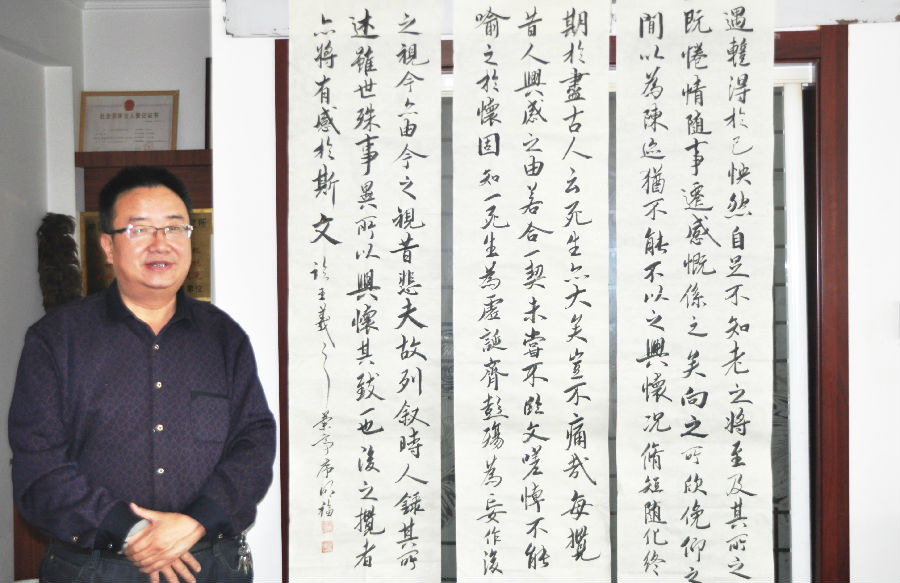 社会团体法人登记证书
遇輒得於己怏然自足不知老之將至及其所之
既惓情随事遷感慨係之矣向之所欣俛仰之
間以為陳迹猶不能不以之興懷况脩短随化終
期於盡古人云死生亦大矣豈不痛哉每攬
昔人興感之由若合一契未嘗不臨文嗟悼不能
喻之於懷固知一死生為虛誕齊彭殤為妄作後
之視今亦由今之視昔悲夫故列叙時人錄其所
述雖世殊事異所以興懷其致一也後之攬者
亦將有感於斯文 王羲之蘭亭序明福